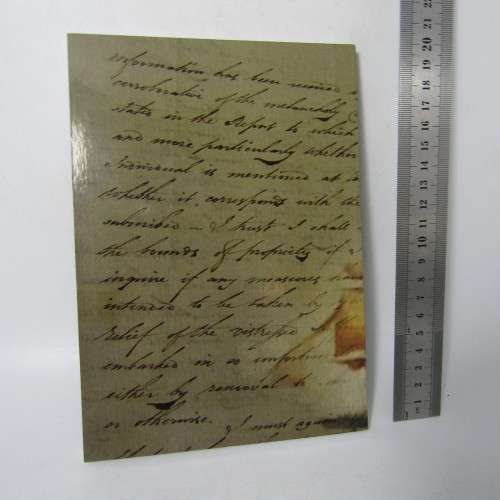 information has been received
corroborative of the melancholy
stated in the Report to which
and more particularly whether
individual is mentioned at
whether it corresponds with the
subscribed — I trust I shall
the bounds of propriety if
inquire if any measures
intended to be taken by
relief of the distressed
embarked in so important
either by removal to
or otherwise. I must again
1 2 3 4 5 6 7 8 9 10 11 12 13 14 15 16 17 18 19 20 21 22